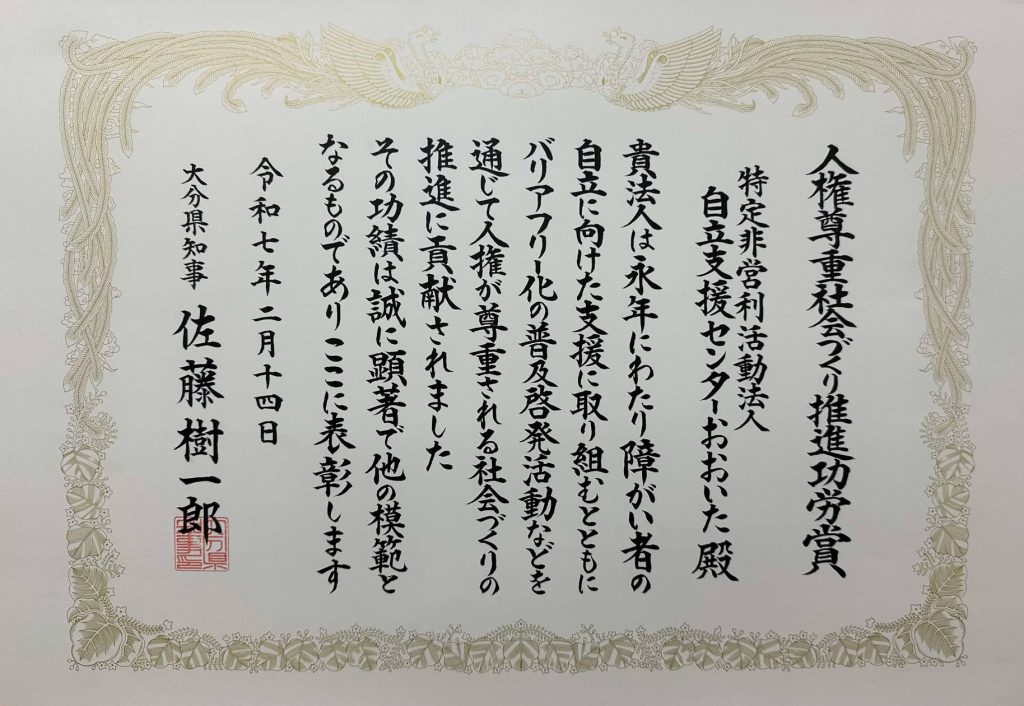 人権尊重社会づくり推進功労賞
特定非営利活動法人
自立支援センターおおいた 殿
貴法人は永年にわたり障がい者の
自立に向けた支援に取り組むとともに
バリアフリー化の普及啓発活動などを
通じて人権が尊重される社会づくりの
推進に貢献されました
その功績は誠に顕著で他の模範と
なるものでありここに表彰します
令和七年二月十四日
大分県知事 佐藤樹一郎